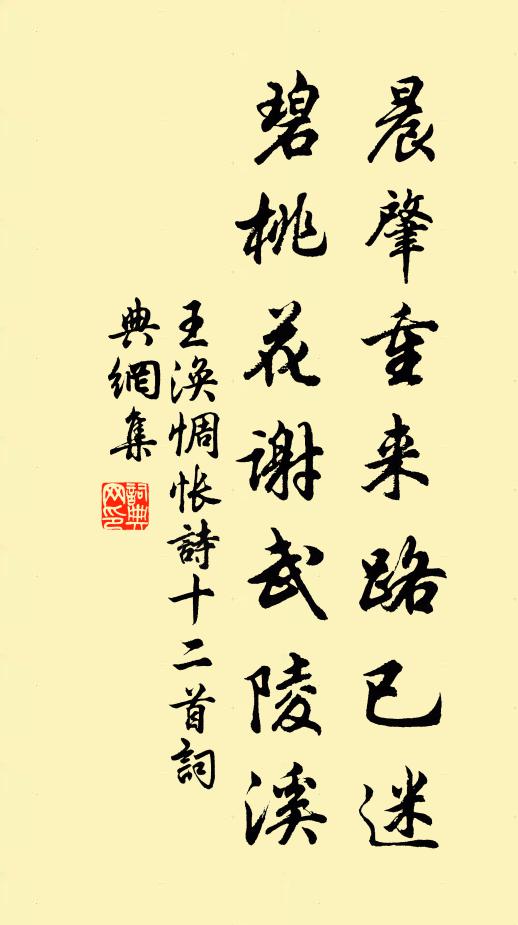 晨肇重来路已迷
碧桃花谢武陵溪
王渙惆悵詩十二首詞
典網集
詞典
网印